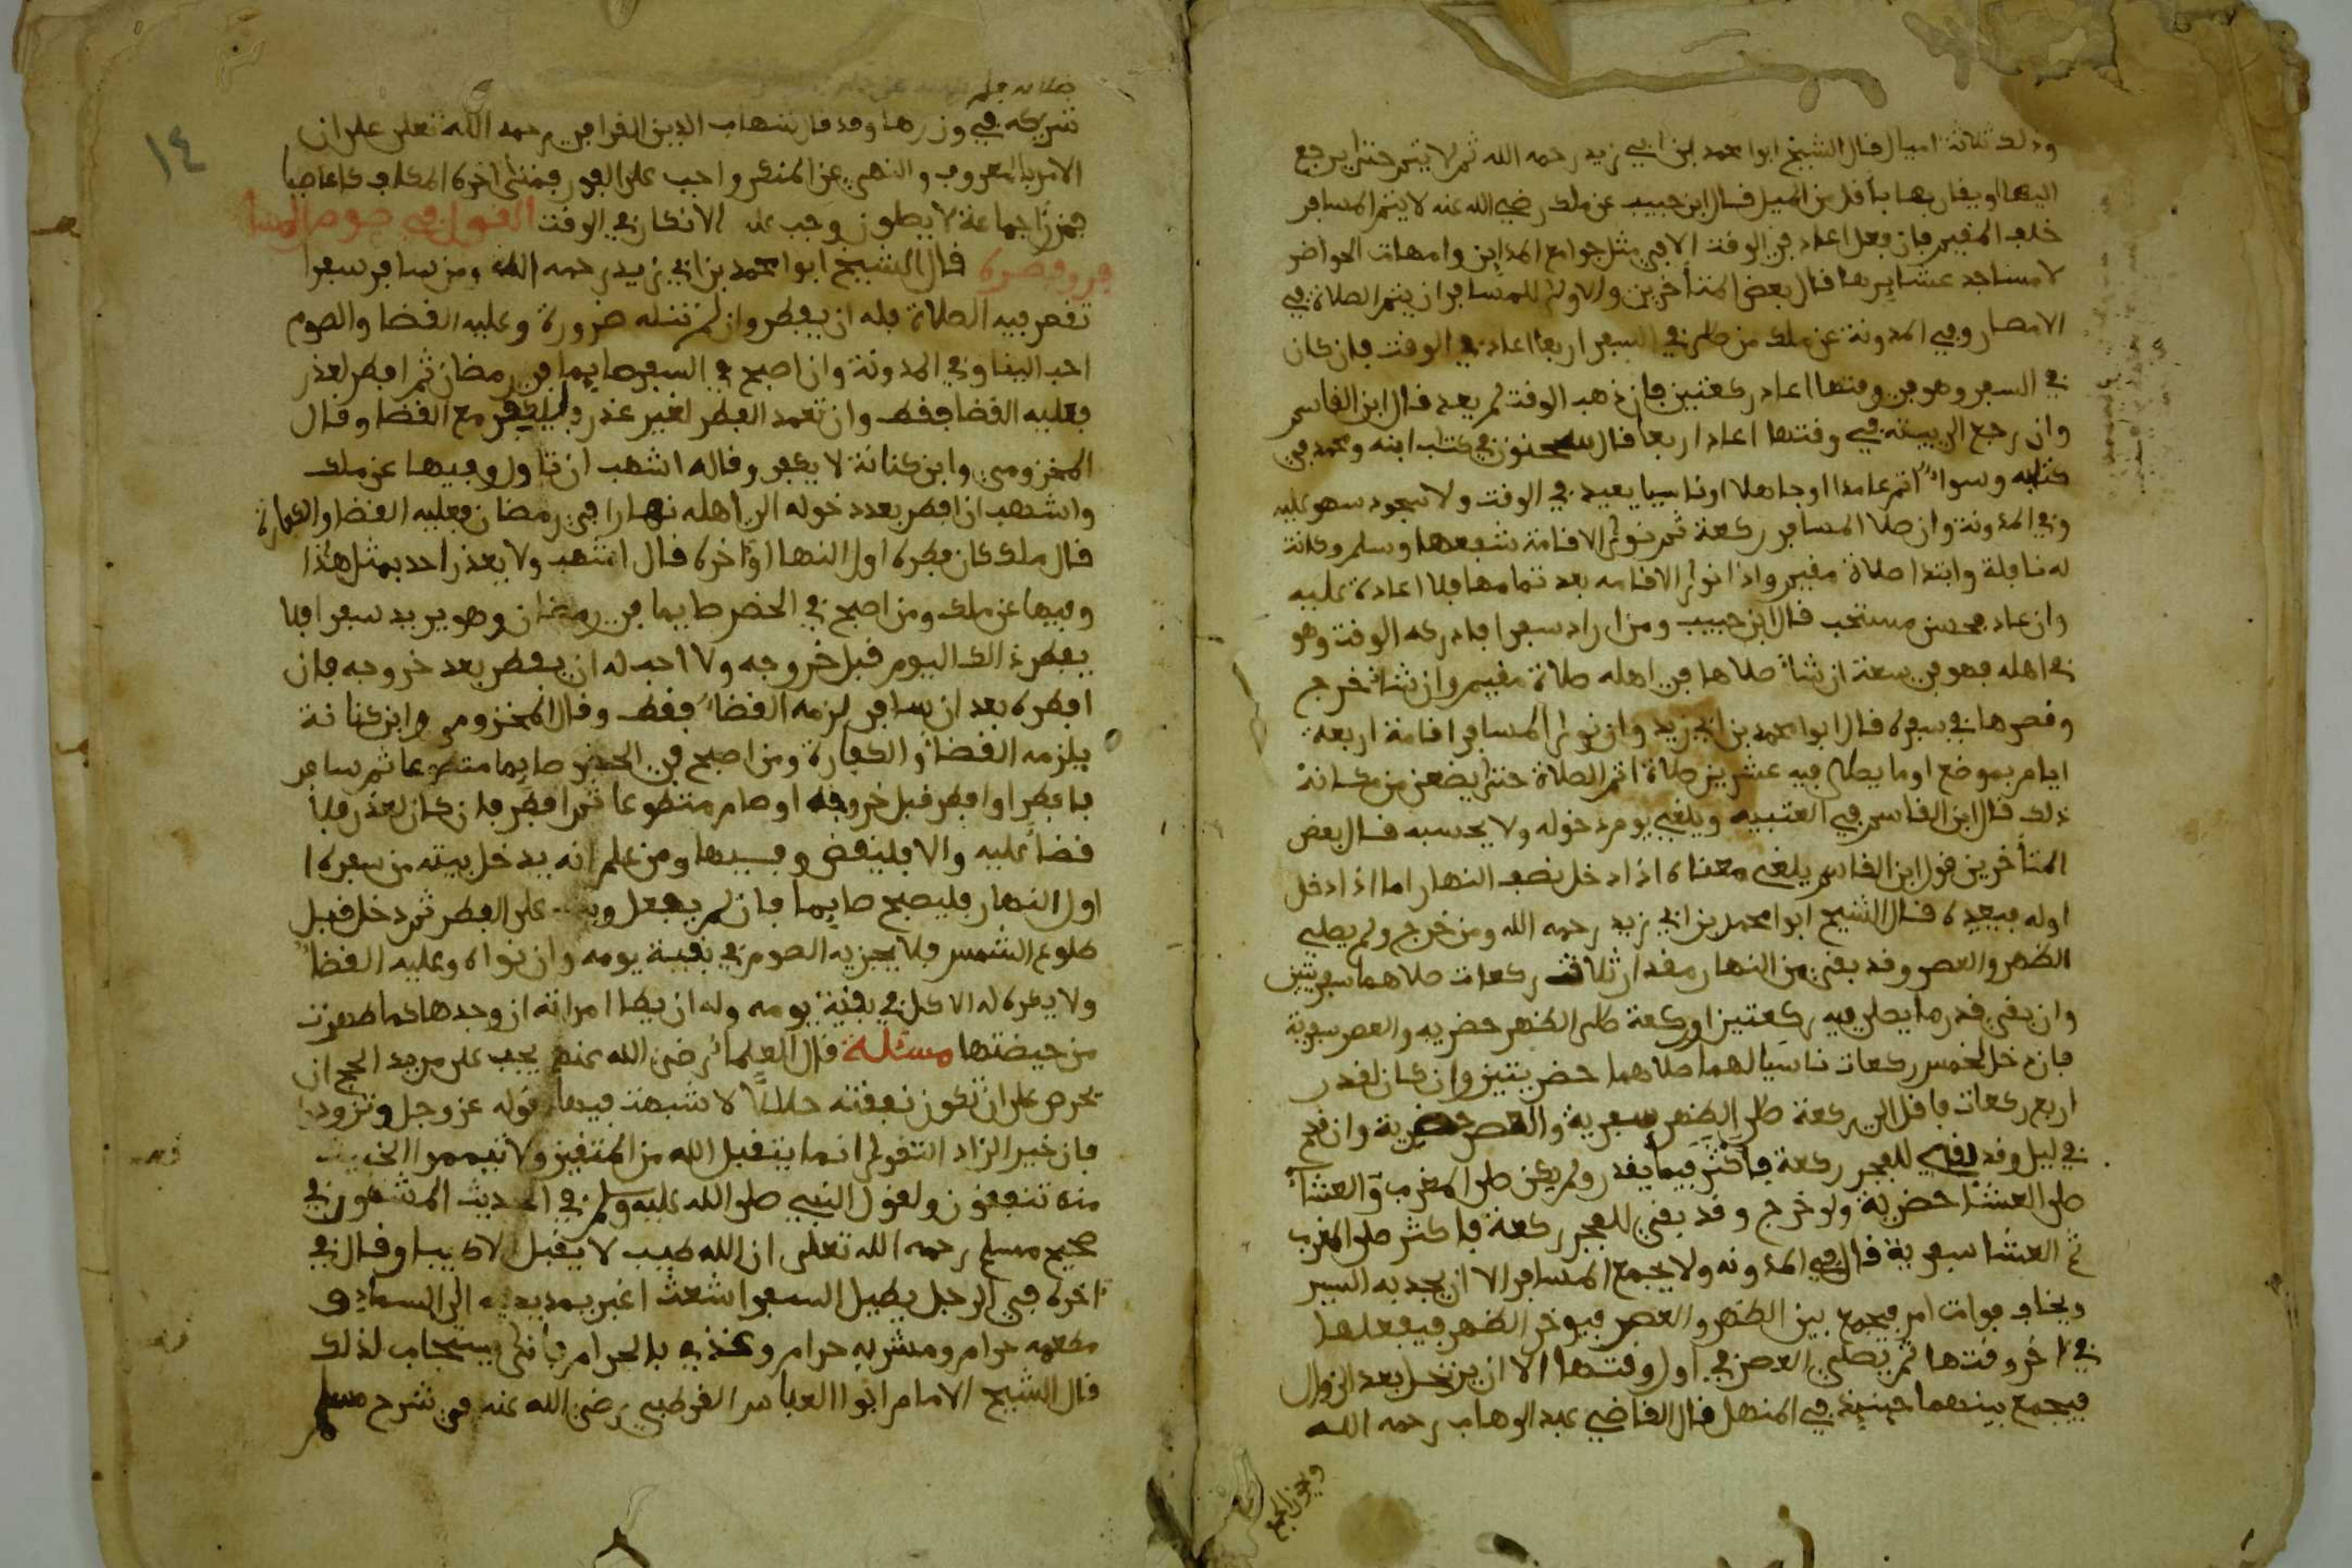 وذلك ثلاثة اميال قال الشيخ ابوا محمد بن ابي زيد رحمه الله ثم لا يتم حتى يرجع
اليها او يقاربها باقل من الميل قال ابن حبيب عن ملك رضي الله عنه لا يتم المسافر
خلف المقيم فان فعل اعاد في الوقت الا في مثل جوامع المداين وامهات الحواضر
لا مساجد عشايرها قال بعض المتأخرين والاولى للمسافر ان يتم الصلاة في
الامصار وفي المدونة عن ملك من صلى في السفر اربعا اعاد في الوقت فان كان
في السفر وهو في وقتها اعاد ركعتين فان ذهب الوقت لم يعد قال ابن القاسم
وان رجع الى بيته في وقتها اعاد اربعا قال سحنون في كتاب ابنه ومحمد في
كتابه وسواء اتم عامدا او جاهلا او ناسيا يعيد في الوقت ولا سجود سهو عليه
وفي المدونة وان صلا المسافر ركعة ثم نوى الاقامة شفعها وسلم وكانت
له نافلة وابتدا صلاة مقيم واذا نوى الاقامه بعد تمامها فلا اعادة عليه
وان عاد فحسن مستحب قال ابن حبيب ومن اراد سفرا فادركه الوقت وهو
في اهله فهو في سعة ان شاء صلاها في اهله صلاة مقيم وان شاء خرج
وقصرها في سفره قال ابوا محمد بن ابي زيد وان نوى المسافر اقامة اربعة
ايام بموضع او ما يصلي فيه عشرين صلاة اتم الصلاة حتى يضعن من مكانه
ذلك قال ابن القاسم في العتبيه ويلغي يوم دخوله ولا يحسبه قال بعض
المتأخرين قول ابن القاسم يلغي معناه اذا دخل نصف النهار اما اذا دخل
اوله فيعيده قال الشيخ ابوا محمد بن ابي زيد رحمه الله ومن خرج ولم يصلي
الظهر والعصر وقد بقي من النهار مقدار ثلاث ركعات صلاهما سفريتين
وان بقي قدر ما يصلي فيه ركعتين او ركعة صلى الظهر حضريه والعصر سفرية
فان دخل لخمس ركعات ناسيا لهما صلاهما حضريتين وان كان لقدر
اربع ركعات فاقل الى ركعة صلى الظهر سفرية والعصر حضرية وان قدم
في ليل وقد بقي للفجر ركعة فاكثر فيما يقدر ولم يكن صلى المغرب والعشاء
صلى العشا حضرية ولو خرج وقد بقي للفجر ركعة فاكثر صلى المغرب
ثم العشا سفرية قال في المدونه ولا يجمع المسافر الا ان يجد به السير
ويخاف فوات امر فيجمع بين الظهر والعصر فيوخر الظهر فيفعلها
في اخر وقتها ثم يصلي العصر في اول وقتها الا ان يرتحل بعد الزوال
فيجمع بينهما حينيذ في المنهل قال القاضي عبد الوهاب رحمه الله
ويجوز الجمع
صلاته فهو
شريكه في وزرها وقد قال شهاب الدين القرافي رحمه الله تعلى على ان
الامر بالمعروف والنهي عن المنكر واجب على الفور فمتى اخره المكلف كان عاصيا
فمن را جماعة لا يصلون وجب عليه الانكار في الوقت القول في صوم المسا
فر وفطره قال الشيخ ابوا محمد بن ابي زيد رحمه الله ومن سافر سفرا
تقصر فيه الصلاة فله ان يفطر وان لم تنله ضرورة وعليه القضا والصوم
احب الينا وفي المدونة وان اصبح في السفر صايما في رمضان ثم افطر لعذر
فعليه القضا فقط وان تعمد الفطر لغير عذر فليكفر مع القضا وقال
المخزومي وابن كنانة لا يكفر وقاله اشهب ان تاول وفيها عن ملك
واشهب ان افطر بعد دخوله الى اهله نهارا في رمضان فعليه القضا والكفارة
قال ملك كان فطره اول النهار او اخره قال اشهب ولا يعذر احد بمثل هذا
وفيها عن ملك ومن اصبح في الحضر صايما في رمضان وهو يريد سفرا فلا
يفطر ذالك اليوم قبل خروجه ولا احب له ان يفطر بعد خروجه فان
افطره بعد ان سافر لزمه القضاء فقط وقال المخزومي وابن كنانة
يلزمه القضاء والكفارة ومن اصبح في الحضر صايما متطوعا ثم سافر
فافطر او افطر قبل خروجه او صام متطوعا ثم افطر فان كان لعذر فلا
قضا عليه والا فليقض وفيها ومن علم انه يدخل بيته من سفره
اول النهار فليصبح صايما فان لم يفعل و على الفطر ثم دخل قبل
طلوع الشمس فلا يجزيه الصوم في بقية يومه وان نواه وعليه القضاء
ولا يكره له الاكل في بقية يومه وله ان يطا امراته ان وجدها كما طهرت
من حيضتها مسئلة قال العلماء رضي الله عنهم يجب على مريد الحج ان
يحرص على ان تكون نفقته حلالا لا شبهت فيها لقوله عز وجل وتزودوا
فان خير الزاد التقوى انما يتقبل الله من المتقين ولا تيمموا الخبيث
منه تنفقون ولقول النبي صلى الله عليه وسلم في الحديث المشهور في
صحيح مسلم رحمه الله تعلى ان الله طيب لا يقبل الا طيبا وقال في
اخره في الرجل يطيل السفر اشعث اغبر يمد يديه الى السماء و
مطعمه حرام ومشربه حرام وغذي بالحرام فأنى يستجاب لذلك
قال الشيخ الامام ابوا العباس القرطبي رضي الله عنه في شرح مسلم
١٤